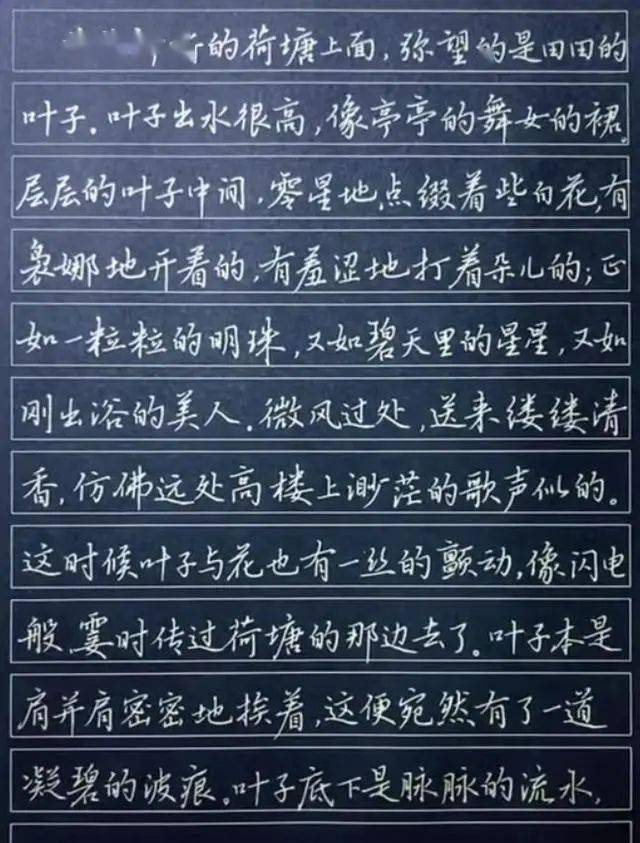 的荷塘上面，弥望的是田田的
叶子。叶子出水很高，像亭亭的舞女的裙。
层层的叶子中间，零星地点缀着些白花，有
袅娜地开着的，有羞涩地打着朵儿的；正
如一粒粒的明珠，又如碧天里的星星，又如
刚出浴的美人。微风过处，送来缕缕清
香，仿佛远处高楼上渺茫的歌声似的。
这时候叶子与花也有一丝的颤动，像闪电
般，霎时传过荷塘的那边去了。叶子本是
肩并肩密密地挨着，这便宛然有了一道
凝碧的波痕。叶子底下是脉脉的流水，